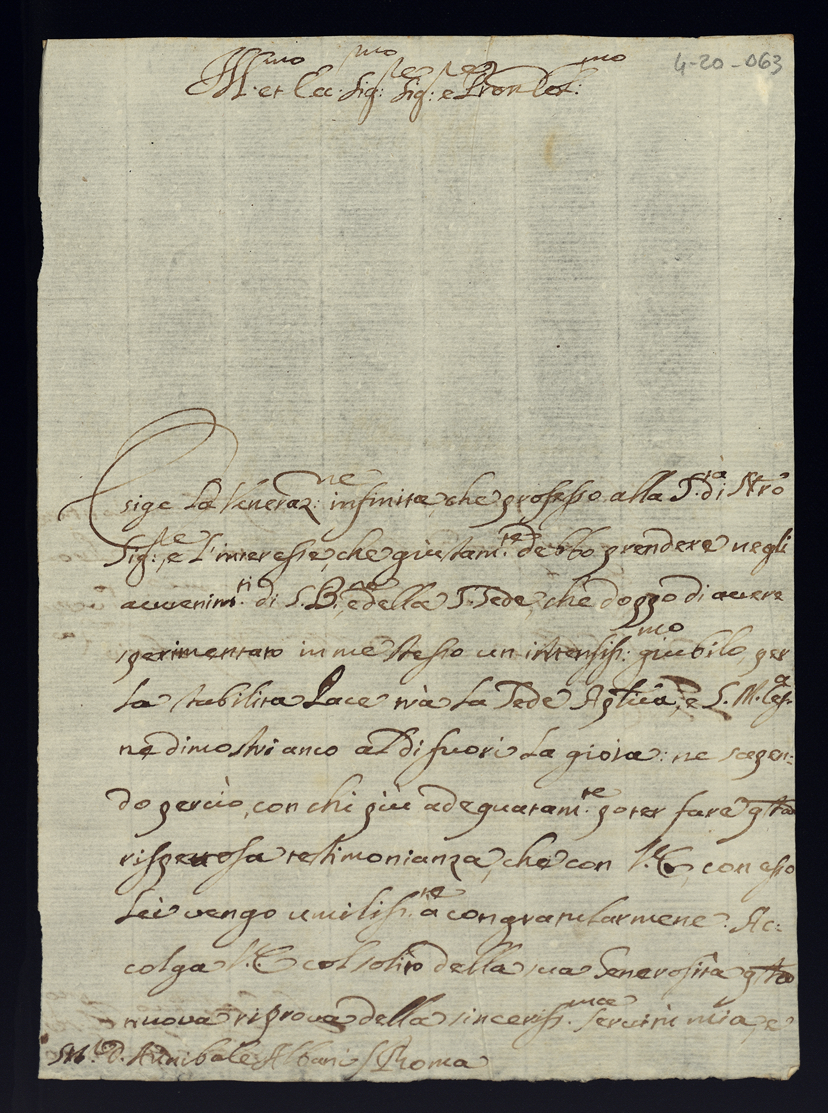 4-20-063
Ill.mo et Ecc.mo Sig.re Sig.re e Pron Col.mo
Esige la veneraz.ne infinita, che professo alla S.tà di Nrõ
Sig.re, e l'interesse, che giustam.te debbo prendere negli
avvenim.ti di S. B.ne, e della S. Sede, che doppo di avere
sperimentato in me stesso un intensiss.mo giubilo, per
la stabilita Pace trà la Sede Aplicã, e S. M. Ces.a
ne dimostri anco al di fuori la gioia: ne sapen-
do perciò, con chi più adeguatam.te poter fare qta
rispettosa testimonianza, che con V. E., con esso
Lei vengo umiliss.te à congratularmene. Ac-
colga V. E. col solito della sua Generosità qta
nuova riprova della sinceriss.ma servitù mia, e
D. Annibale Albani / Roma